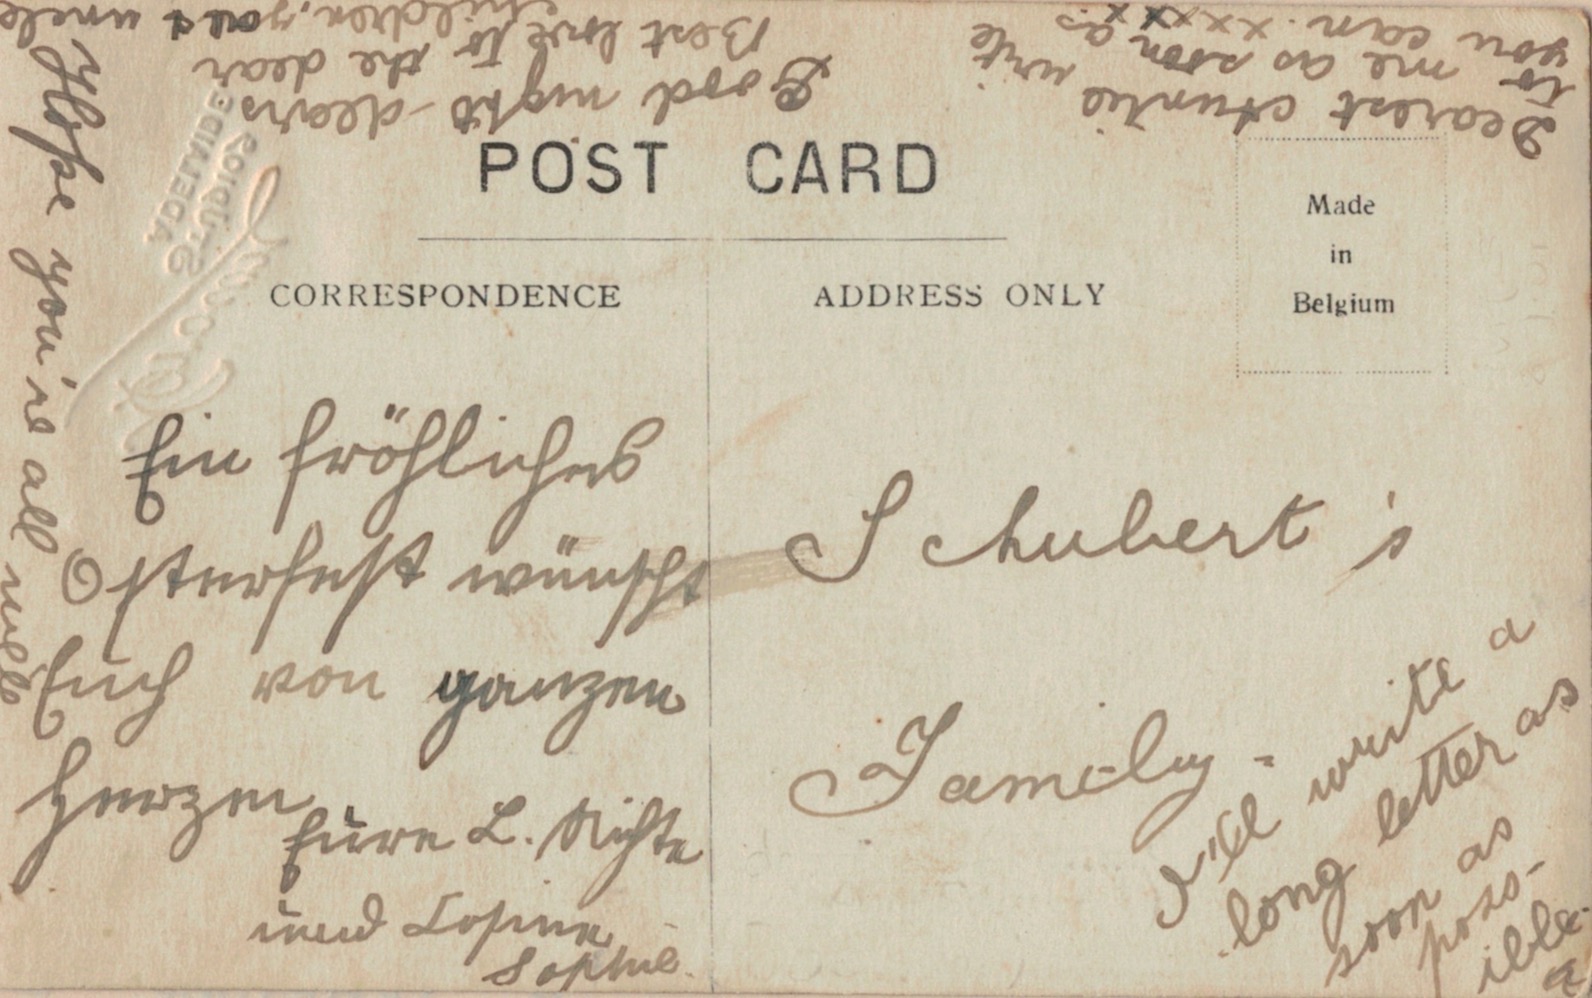 POST CARD
CORRESPONDENCE
ADDRESS ONLY
Made
in
Belgium
Ein fröhliches
Osterfest wünscht
Euch von ganzen
Herzen
Eure L. Nichte
und Cosine
Sophie.
Schubert's
Family -
I'll write a
long letter as
soon as
poss-
ible.
Hope you're all well
Good night dears
Best love to the dear
children, you & uncle
Dearest Auntie write
to me as soon as
you can. xxxxx
ADELAIDE